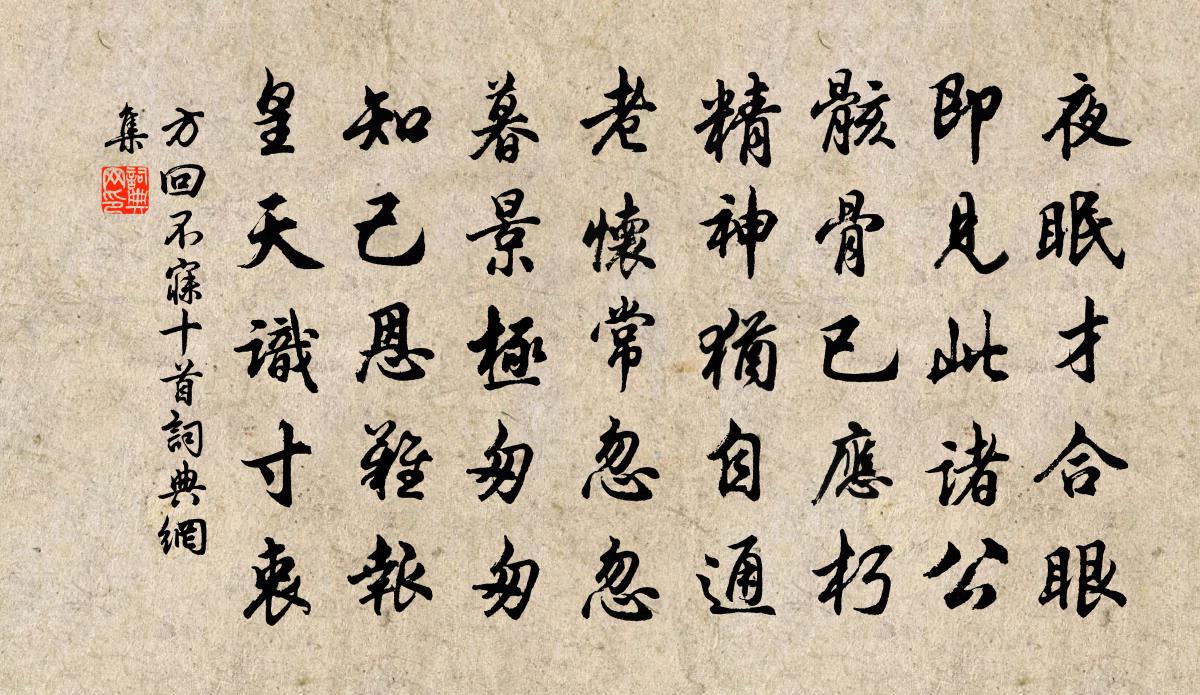 夜眠才合眼
即見此諸公
骸骨已應朽
精神猶自通
老懷常忽忽
暮景極匆匆
知己恩難報
皇天識寸衷
方回不寐十首詞典網
集
詞典網印